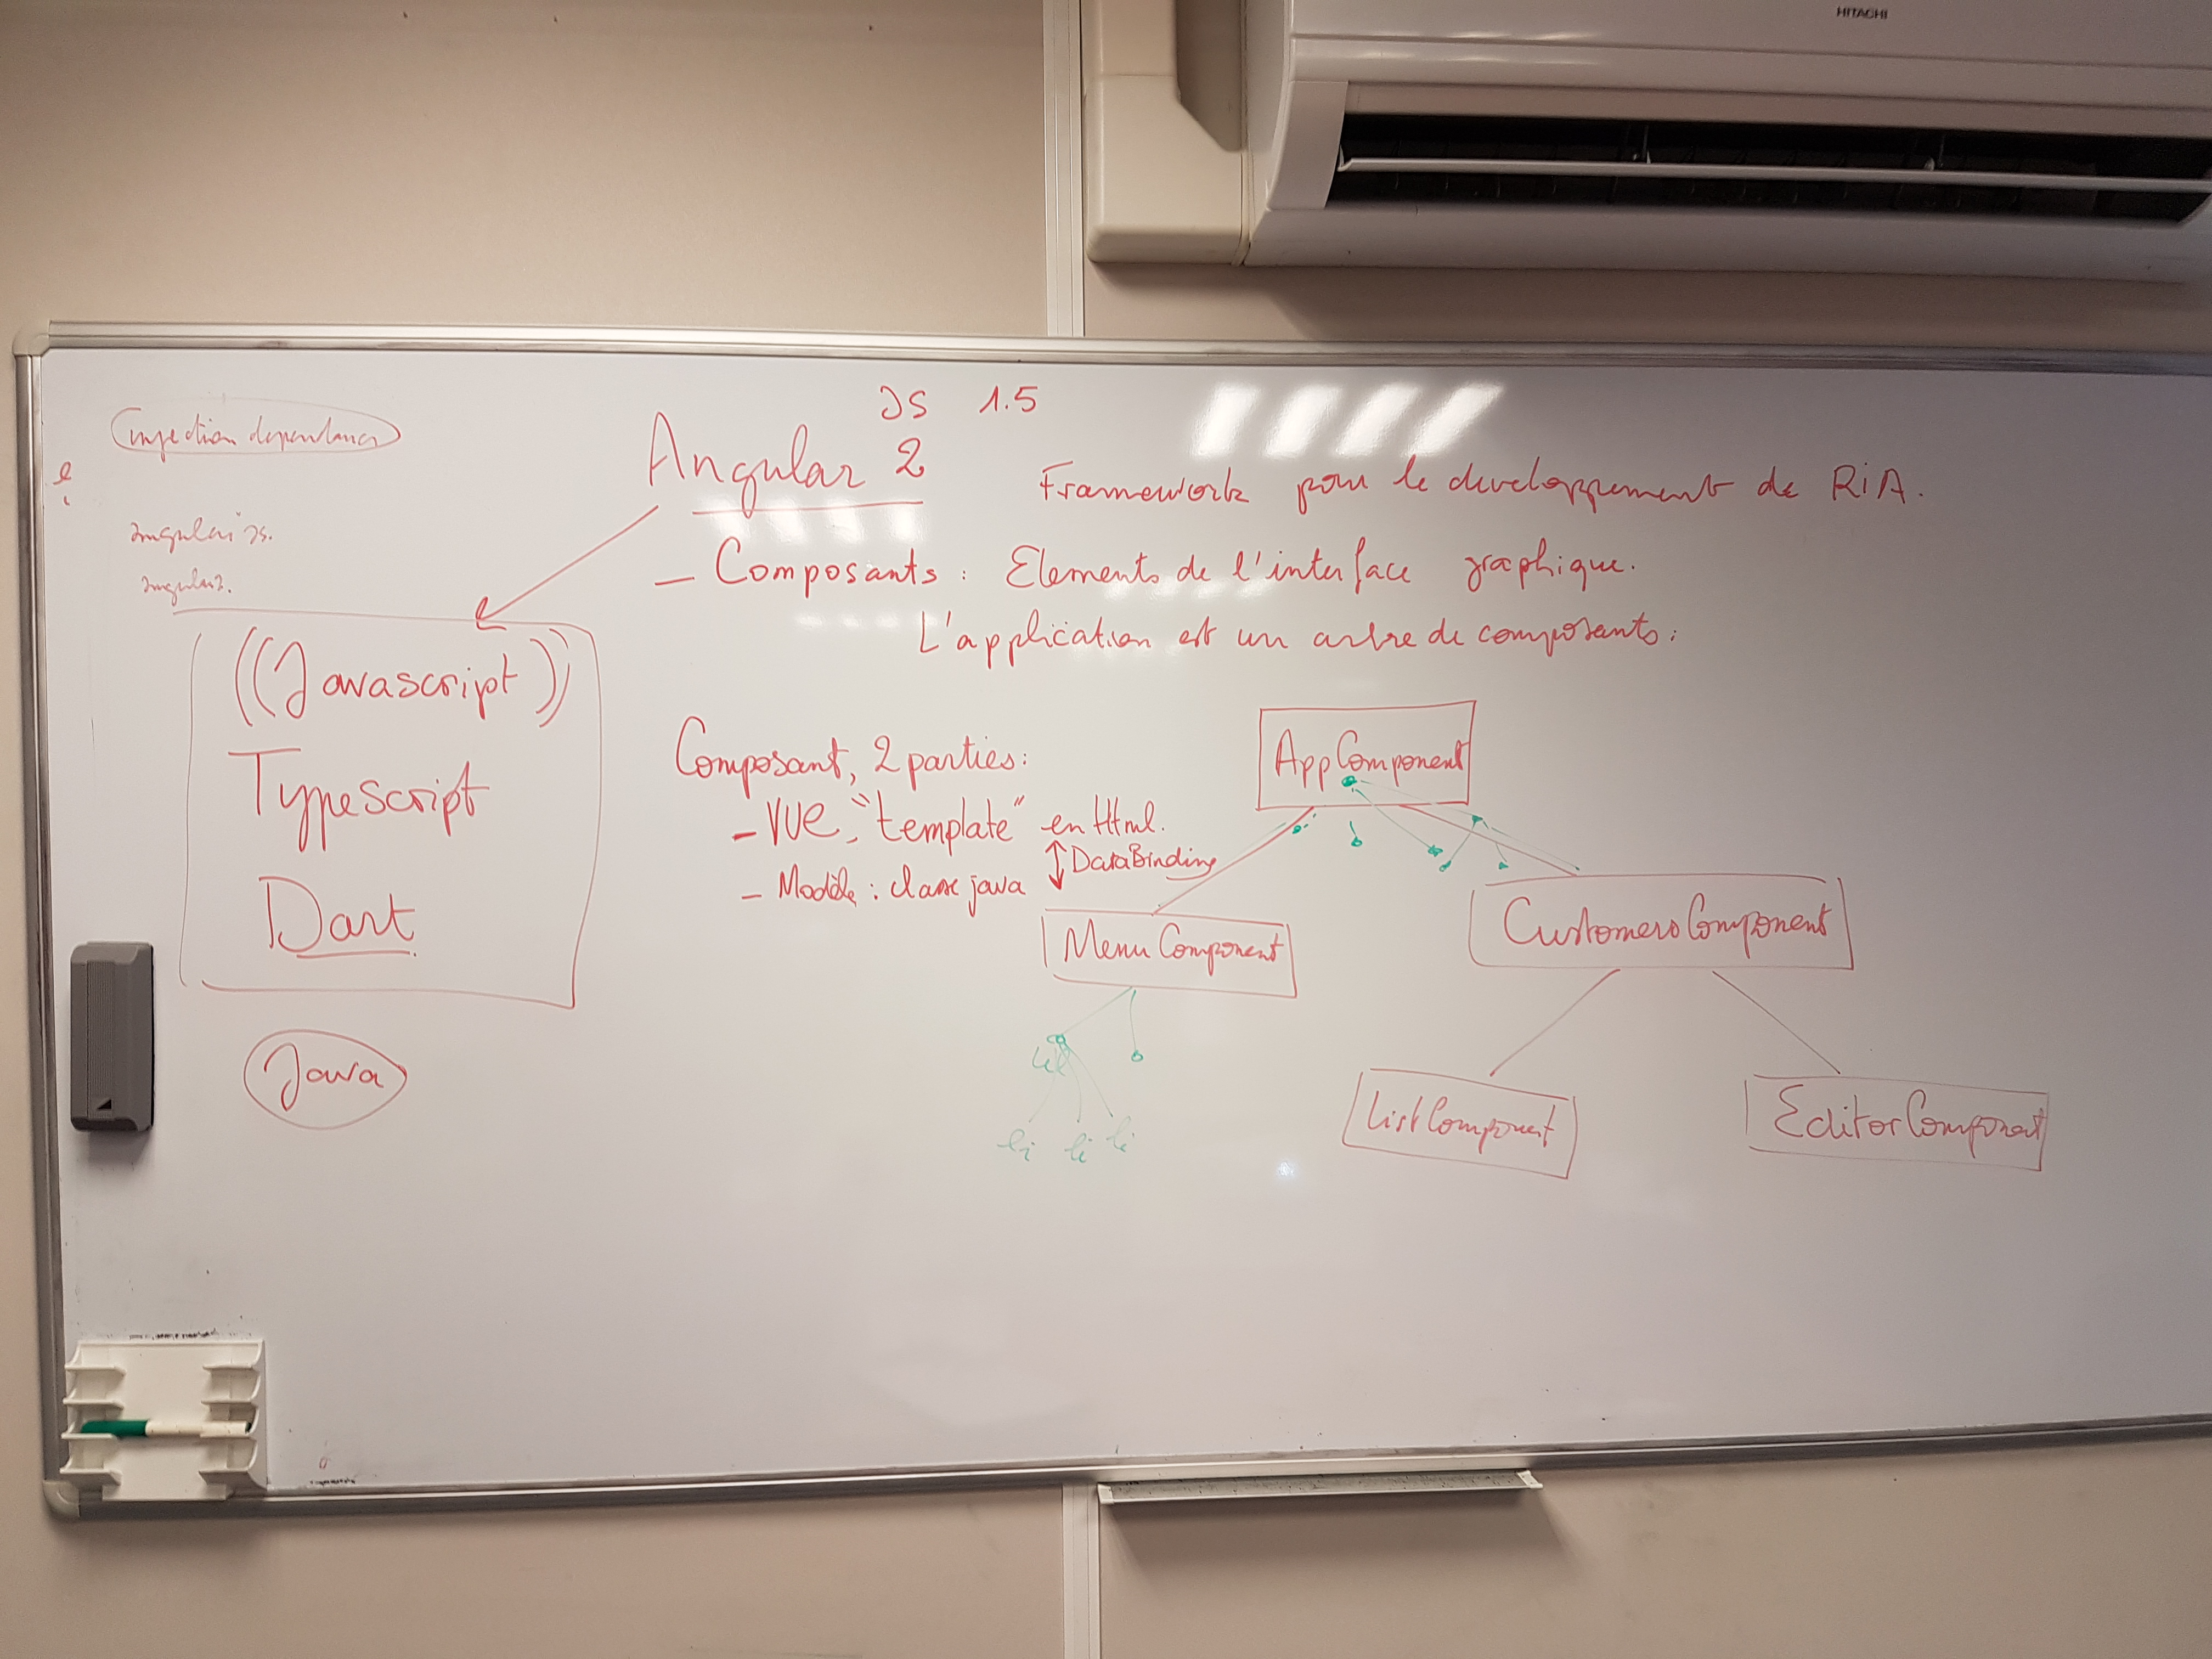 HITACHI
JS 1.5
injection dependances
Angular 2
Framework pour le developpement de RiA.
angular JS.
angular2.
- Composants : Elements de l'interface graphique.
L'application est un arbre de composants :
((Javascript))
TypeScript
Dart
Java
Composant, 2 parties :
- VUE, "template" en Html.
DataBinding
- Modèle : classe java
AppComponent
MenuComponent
CustomersComponent
ListComponent
EditorComponent
ul
li li li